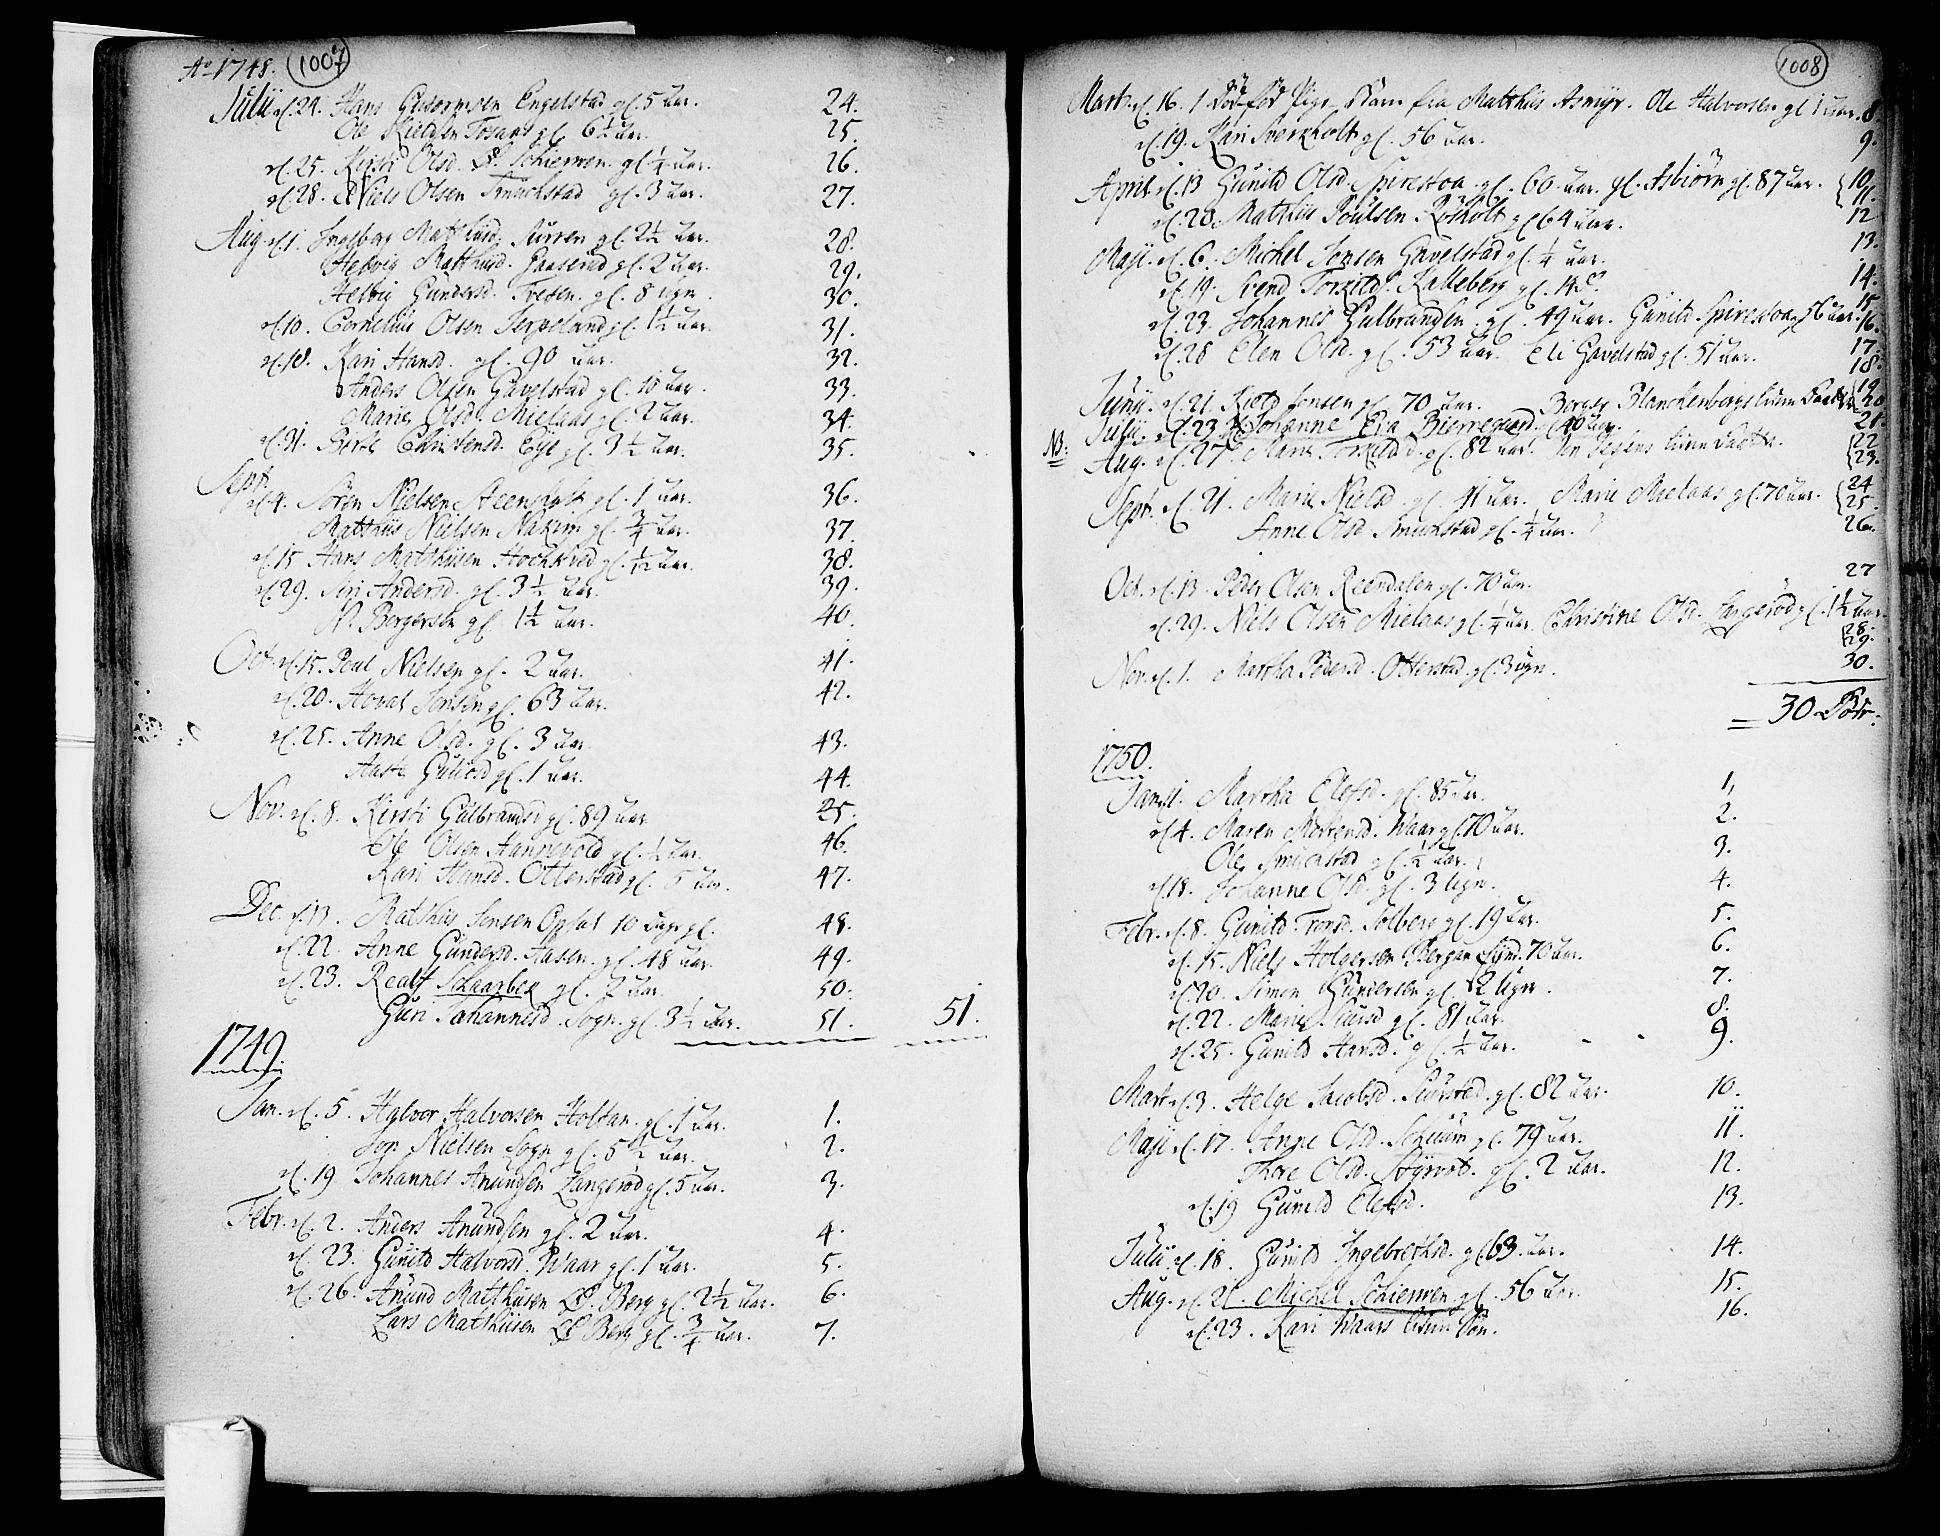 Ao 1748. 1007
Julii d. 24. Hans Guttormsen Engelstad gl. 5 aar. 24.
Ole Kieldsen Tosaas gl. 6½ aar. 25.
d. 25. Kirsti Olsd. Schierven gl. ¼ aar. 26.
d. 28. Niels Olsen Smuchstad gl. 3 aar. 27.
Aug. d. 1. Ingeborg Matthisd. gl. 2½ aar. 28.
Helvig Matthisd. Gaaserød gl. 2 aar. 29.
Helvig Gundersd. Tveten gl. 8 ugr. 30.
d. 10. Cornelius Olsen gl. 1½ aar. 31.
d. 18. Kari Hansd. gl. 90 aar. 32.
Anders Olsen Gavelstad gl. 10 aar. 33.
Marie Olsd. Mielaas gl. 2 aar. 34.
d. 31. Berte Christensd. Eye gl. 3½ aar. 35.
Sept.
d. 4. Sören Nielsen Steensholt gl. 1 aar. 36.
Matthiis Nielsen gl. ¾ aar. 37.
d. 15 Hans Mathiisen gl. ½ aar. 38.
d. 29. Siri Andersd. gl. 3½ aar. 39.
N. Bergersen gl. 1½ aar. 40.
Oct. d. 15. Poul Nielsen gl. 2 aar. 41.
d. 20. Hoval Jensen gl. 63 aar. 42.
d. 25. Anne Olsd. gl. 3 aar. 43.
Aaste gl. 1 aar. 44.
Nov. d. 8. Kirsti Gulbrandsd gl. 89 aar. 45.
Ole Olsen Hannevold gl. ½ aar. 46.
Kari Hansd. Otterstad gl. 5 aar. 47.
Dec. d. 13. Matthis Jensen Opsal 10 dage gl. 48.
d. 22. Anne Gundersd. Aasen gl. 48 aar. 49.
d. 23. Realf Schaarbek gl. 2 aar. 50.
Guri Johannesd. Sogn gl. 3½ aar. 51. 51.
1749.
Jan. d. 5. Halvor Halvorsen Holtan gl. 1 aar. 1.
Nielsen Sogn gl. 5½ aar. 2.
d. 19 Johannes Anundsen Langerød gl. 5 aar. 3.
Febr. d. 2. Anders Anundsen gl. 2 aar. 4.
d. 23. Gunild Halvorsd. Waar gl. 1 aar. 5.
d. 26. Anund Matthisen Ø. Berg gl. 2½ aar. 6.
Lars Mathiisen Ø Berg gl. ¾ aar. 7.
1008
Mart. d. 16. 1 dødfød Pige Barn fra Matthiis Asmyr. Ole Halvorsen gl 1 aar. 8.
d. 19. Kari Sverkholt gl. 56 aar. 9.
April d. 13 Gunild Olsd. Spirestoa gl. 60 aar. gl. Asbiörn gl. 87 aar. 10. 11.
d. 20. Mathiis Poulsen Röholt gl 64 aar. 12
Maji. d. 6. Michel Jensen Gavelstad gl. ¼ aar. 13.
d. 19. Svend Torkild. Kalleberg gl. 14 14.
d. 23. Johannes Gulbrandsen gl. 49 aar. Gunild Spirestoa gl 56 aar. 15. 16.
d. 28 Elen Olsd. gl. 53 aar. Eli Gavelstad gl. 51 aar. 17. 18.
Junii. d. 21. Kield Jensen gl. 70 aar. Berger Blanchenbergs 19. 20
Julii. d. 23 Johanne Eva Bierregaard. 40 aar. 21.
NB: Aug. d. 27. Marie Torkildsd. gl. 82 aar. 22. 23.
Sept. d. 21. Marie Nielsd gl. 41 aar. Marie Mielaas gl. 70 aar. 24 25.
Anne Olsd Smuchstad gl. ¼ aar. 26.
Oct. d. 13. Peder Olsen Reendalen gl. 70 aar. 27
d. 29. Niels Olsen Mielaas gl. ¼ aar. Christine Olsd. Langerød gl. 1½ aar. 28. 29.
Nov. d. 1. Martha Pedersd. Otterstad gl. 3 ugr. 30.
30
1750.
Jan. 1. Martha Elefsd. gl. 85 aar. 1,
d. 4. Maren Mortensd. Waar gl. 70 aar. 2.
Ole Smuchstad gl. ½ aar. 3.
d. 18. Johanne Olsd. gl. 3 Ugr. 4.
Febr. d. 8. Gunild Trondsd. Solberg gl. 19 aar. 5.
d. 15. Niels Holgersen Bergan 70 aar. 6.
d. 20. Simon Gundersen gl. 2 Ugr. 7.
d. 22. Marie gl. 81 aar. 8.
d. 25. Gunild Hansd. gl. ½ aar. 9.
Mart. d. 3. Helge Jacobsd. gl. 82 aar. 10.
Maji d. 17. Anne Olsd. gl. 79 aar. 11.
Thore Olsd. Styrvol. gl. 2 aar. 12.
d. 19 Gunild Elefsd. 13.
Julii d. 18. Gunild Ingebretsd. gl 63. aar. 14.
Aug. d. 21. Michel Schierven gl. 56 aar. 15.
d. 23. Kari Waars liden Søn. 16.